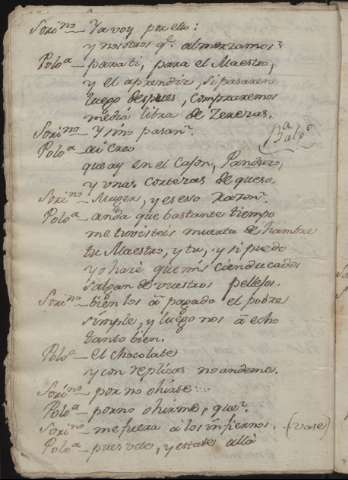 Sori.no — Ya voy por ello:
y nosotros q.e almorzamos?
Polo.a — para ti, para el Maestro,
y el aprendiz, si pasaren
luego despues, compraremos
media libra de Zerezas.
Sori.no — Y sino pasan?
Polo.a — ai creo
que ay en el Cajon, Pandero,
y unas cortezas de queso.
Sori.no — Muger, y es eso razon?
Polo.a — anda que bastante tiempo
me tuvisteis muerta de hambre
tu Maestro, y tu, y si puedo
yo haré que mis cien ducados
salgan de vuestros pellejos.
Sori.no — bien los à pagado el pobre
simple, y luego nos à echo
tanto bien.
Polo.a — el chocolate
y con replicas no andemos.
Sori.no — por no ohirte...
Polo.a — porno ohirme, que?
Sori.no — me fuera à los infiernos. (vase)
Polo.a — pues vete, y estate allà